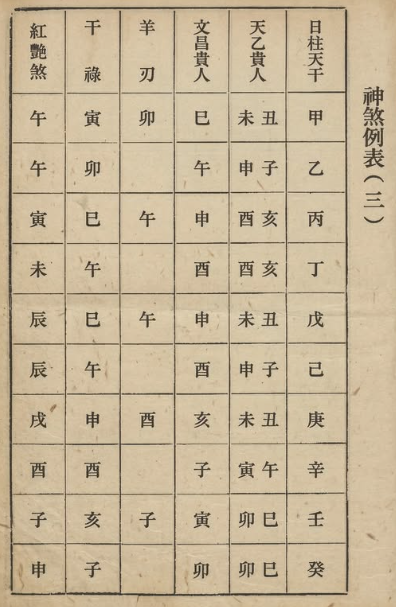 神煞例表(三)
日柱天干 天乙貴人 文昌貴人 羊刃 干祿 紅艷煞
甲 丑未 巳 卯 寅 午
乙 子申 午 卯 午
丙 亥酉 申 午 巳 寅
丁 亥酉 酉 午 未
戊 丑未 申 午 巳 辰
己 子申 酉 午 辰
庚 丑未 亥 酉 申 戌
辛 午寅 子 酉 酉
壬 巳卯 寅 子 亥 子
癸 巳卯 卯 子 申